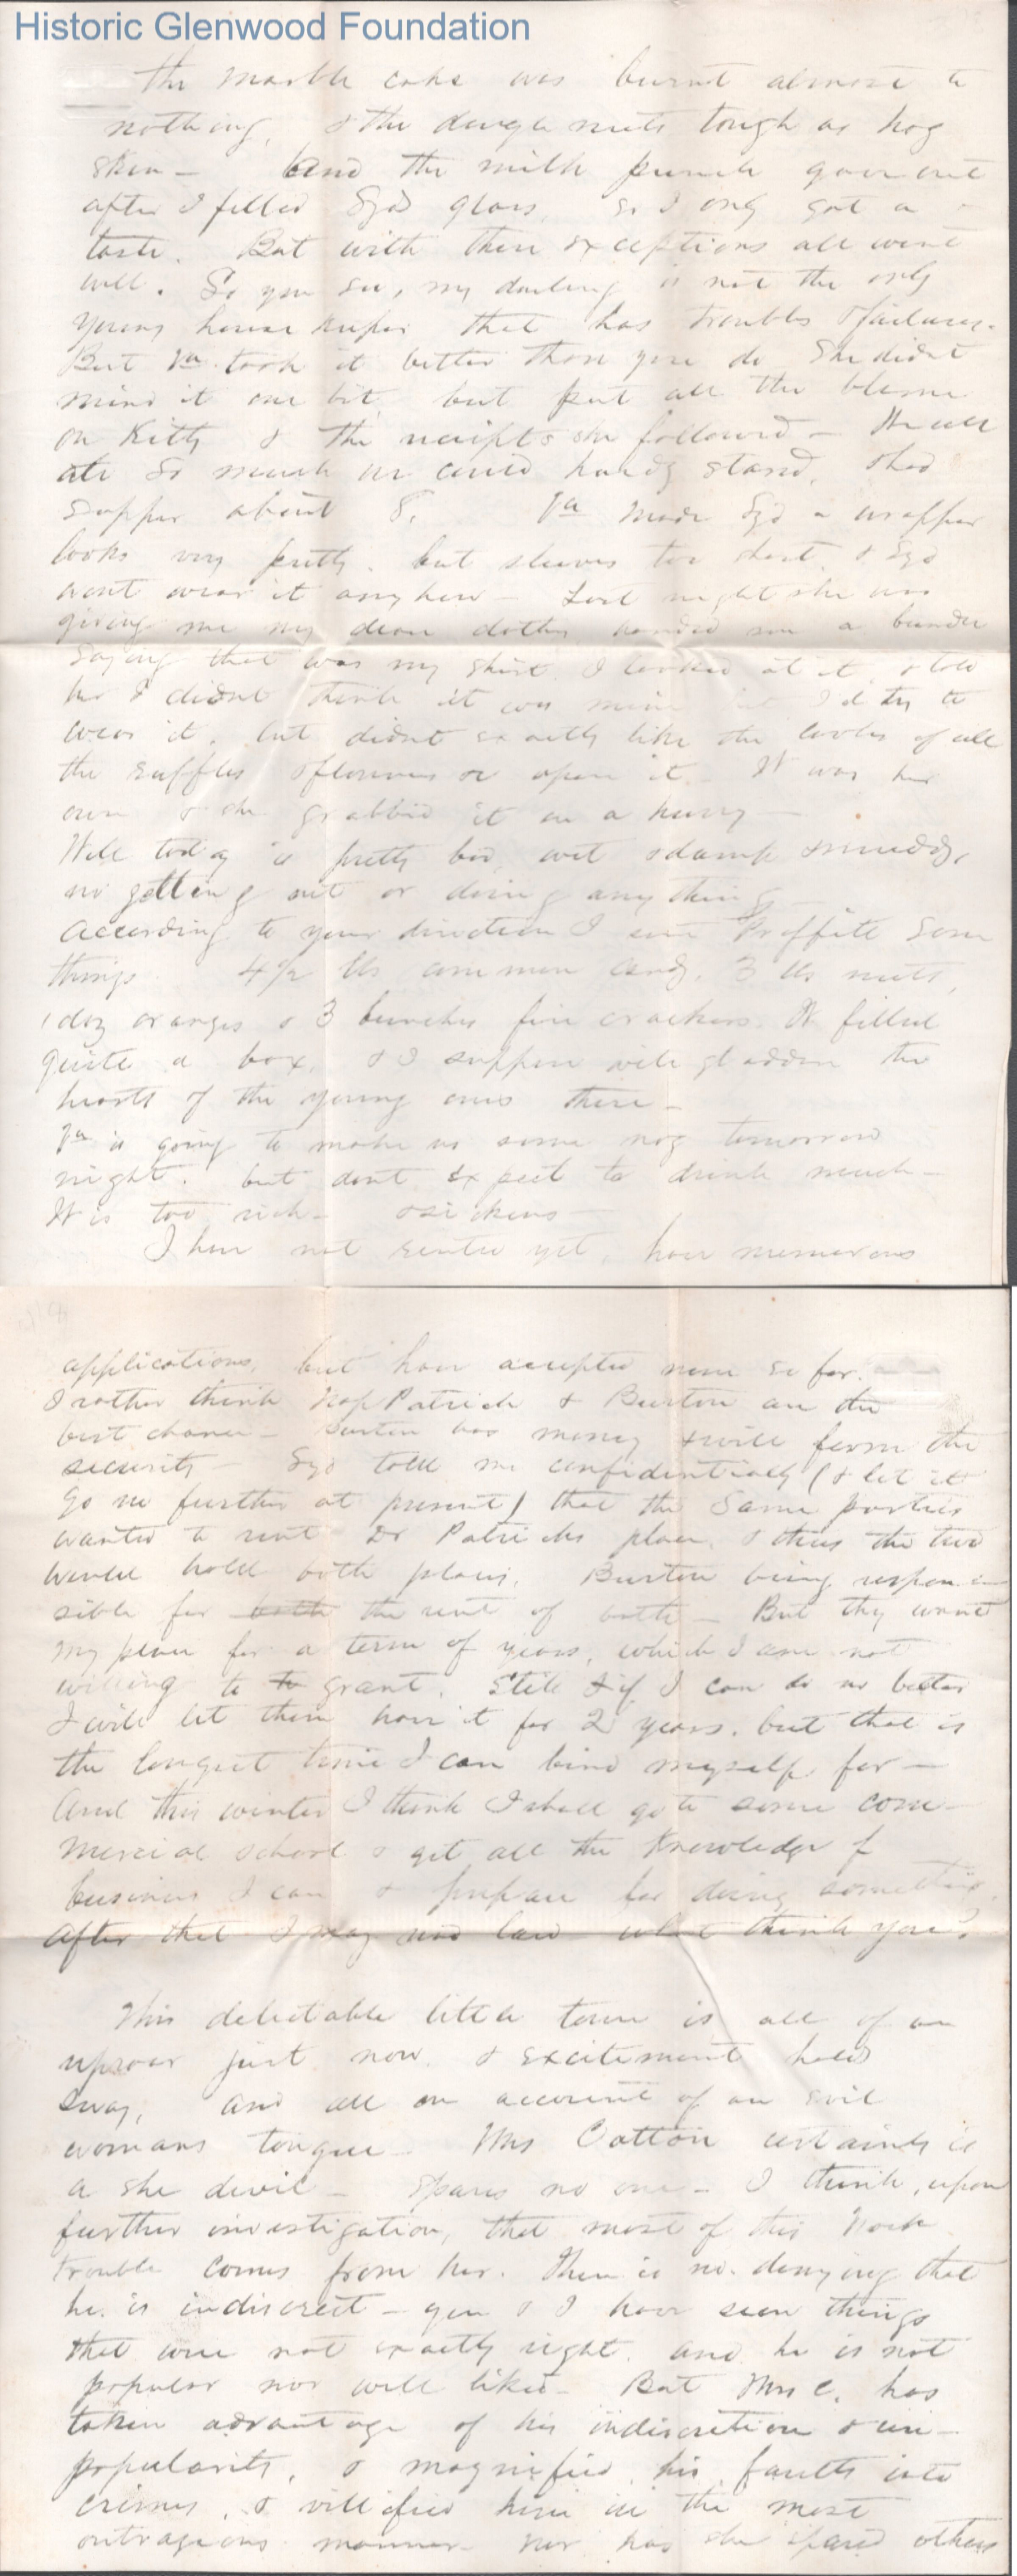 Historic Glenwood Foundation
The Marble cake was burnt almost to
nothing, & the dough nuts tough as hog
skin — And the milk punch gave out
after I filled Syd glass, so I only got a
taste. But with these exceptions all went
well. So you see, my darling is not the only
young house keeper that has troubles & failures.
But Va. took it better than you do She didnt
mind it one bit, but put all the blame
on Kitty & the reciepts she followed — We all
ate as much as we could hardly stand, & had
supper about 8. Va made Syd a wrapper
looks very pretty, but sleeves too short, & Syd
wont wear it anyhow — Last night she was
giving me my clean clothes handed me a bundle
saying that was my shirt. I looked at it, & told
her I didnt think it was mine but I'd try to
wear it, but didnt exactly like the looks of all
the ruffles & flounces upon it. It was her
own & she grabbed it in a hurry —
Well today is pretty bad, wet & damp & muddy,
no getting out or doing any thing
According to your direction I sent Proffitt some
things 4 1/2 lbs common candy, 3 lbs nuts,
1 doz oranges & 3 bunches fire crackers. It filled
quite a box, & I suppose will gladden the
hearts of the young ones there —
Va is going to make us some nog tomorrow
night. but dont expect to drink much —
It is too rich — & sickens —
I have not rented yet, have numerous
applications, but have accepted none so far.
I rather think Nap Patrick & Burton are the
best chance — Burton has money & will form the
security — Syd told me confidentially (& let it
go no further at present) that the same parties
wanted to rent Dr Patricks place, & thus the two
would hold both places. Burton being respon-
sible for both the rent of both — But they want
my place for a term of years, which I am not
willing to to grant. Still & if I can do no better
I will let them have it for 2 years, but that is
the longest time I can bind myself for —
And this winter I think I shall go to some com-
mercial school & get all the knowledge of
business I can & prepare for doing something.
After that I may read law what think you?
This delectable little town is all of an
uproar just now, & excitement holds
sway, and all on account of an evil
womans tongue — Mrs Cotton certainly is
a she devil — Spares no one — I think, upon
further investigation, that most of this
trouble comes from her. There is no denying that
he is indiscreet — you & I have seen things
that were not exactly right, and he is not
popular nor well liked — But Mrs C. has
taken advantage of his indiscretion & un-
popularity, & magnified his faults into
crimes, & villified him in the most
outrageous manner — nor has she spared others